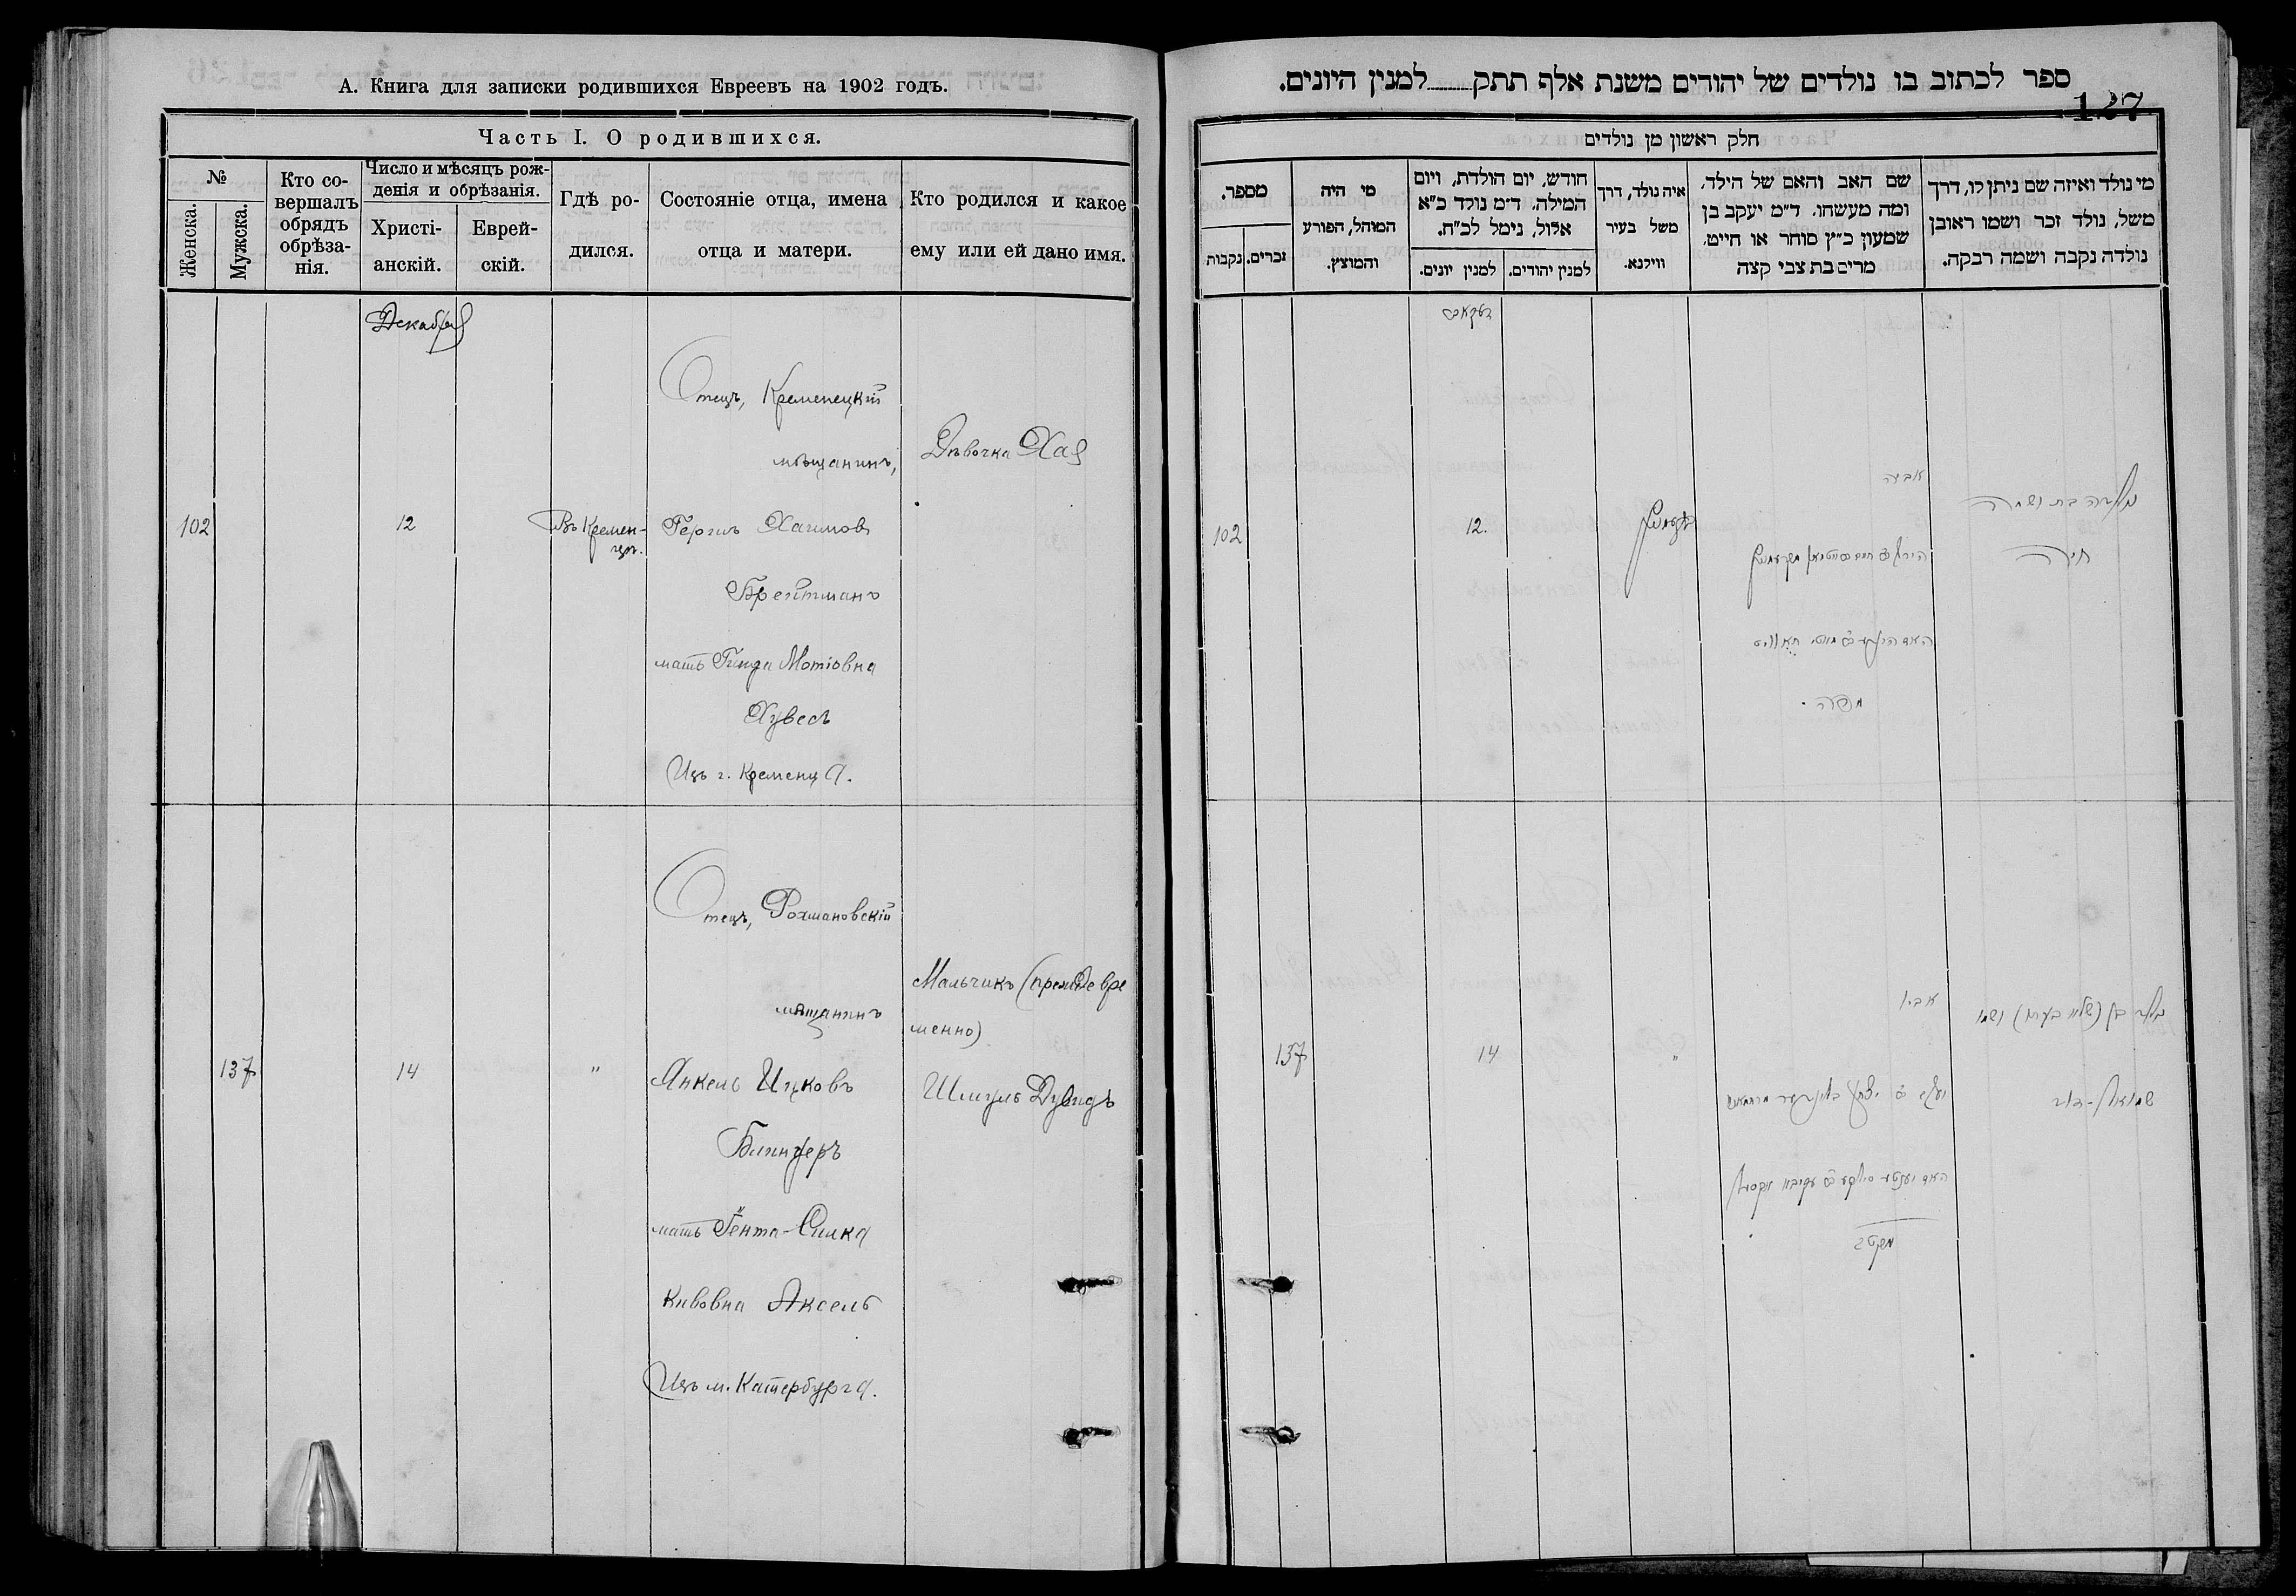 А. Книга для записки родившихся Евреевъ на 1902 годъ.
Часть I. О родившихся.
№
Женска.
Мужска.
Кто со-
вершалъ
обрядъ
обрѣза-
нія.
Число и мѣсяцъ рож-
денія и обрѣзанія.
Христі-
анскій.
Еврей-
скій.
Гдѣ ро-
дился.
Состояніе отца, имена
отца и матери.
Кто родился и какое
ему или ей дано имя.
Декабря
102
12
Въ Кремен-
цѣ.
Отецъ, Кременецкій
мѣщанинъ,
Гершъ Хаимовъ
Брейтманъ
мать Гинда Мотіовна
Хувесъ
Изъ г. Кременца.
Дѣвочка Хая
137
14
"
Отецъ, Рохмановскій
мѣщанинъ
Янкель Ицковъ
Блингеръ
мать Гента-Силка
Кивовна Аксель
Изъ м. Катербурга.
Мальчикъ (преждевре
менно)
Шмуль Дувидъ
ספר לכתוב בו נולדים של יהודים משנת אלף תתק למנין היונים.
127
חלק ראשון מן נולדים
מי נולד ואיזה שם ניתן לו, דרך
משל, נולד זכר ושמו ראובן
נולדה נקבה ושמה רבקה.
שם האב והאם של הילד,
ומה מעשהו. ד״מ יעקב בן
שמעון כ״ץ סוחר או חייט,
מרים בת צבי קצה
איה נולד, דרך
משל בעיר
ווילנא.
חודש, יום הולדת, ויום
המילה. ד״מ נולד כ״א
אלול, נימל לכ״ח.
למנין יהודים.
למנין יונים.
מי היה
המוהל, הפורע
והמוצץ.
מספר.
זכרים.
נקבות
נולדה בת ושמה
חיה
אביה
12.
102
נולד בן (שלא בעתו) ושמו
שמואל-דוד
אביו
"
14
137